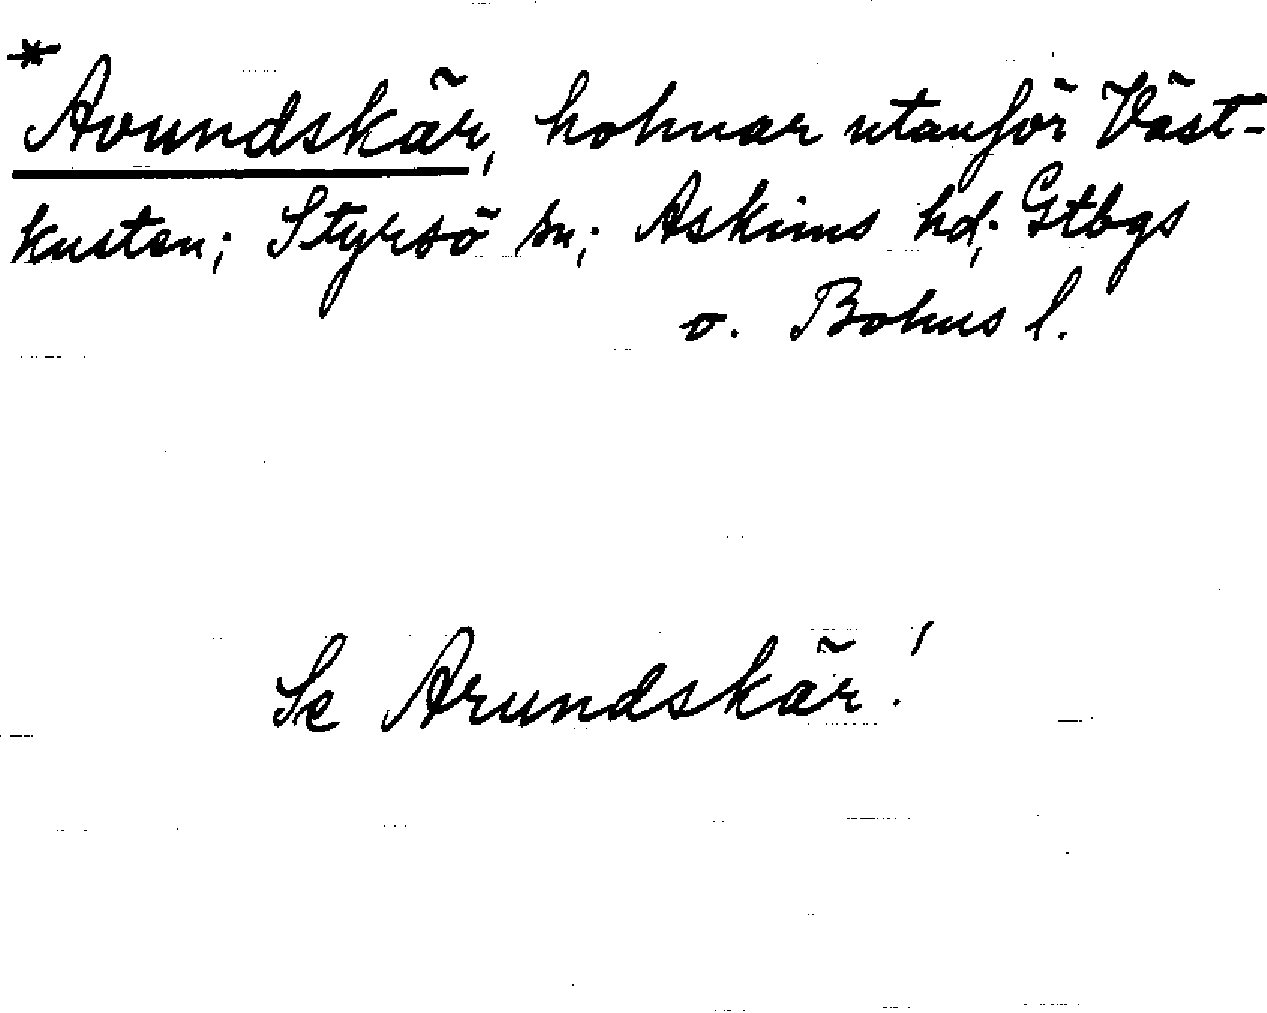 *Avundskär, holmar utanför Väst-
kusten; Styrsö sn; Askims hd; Gtbgs
o. Bohus l.
Se Arundskär!